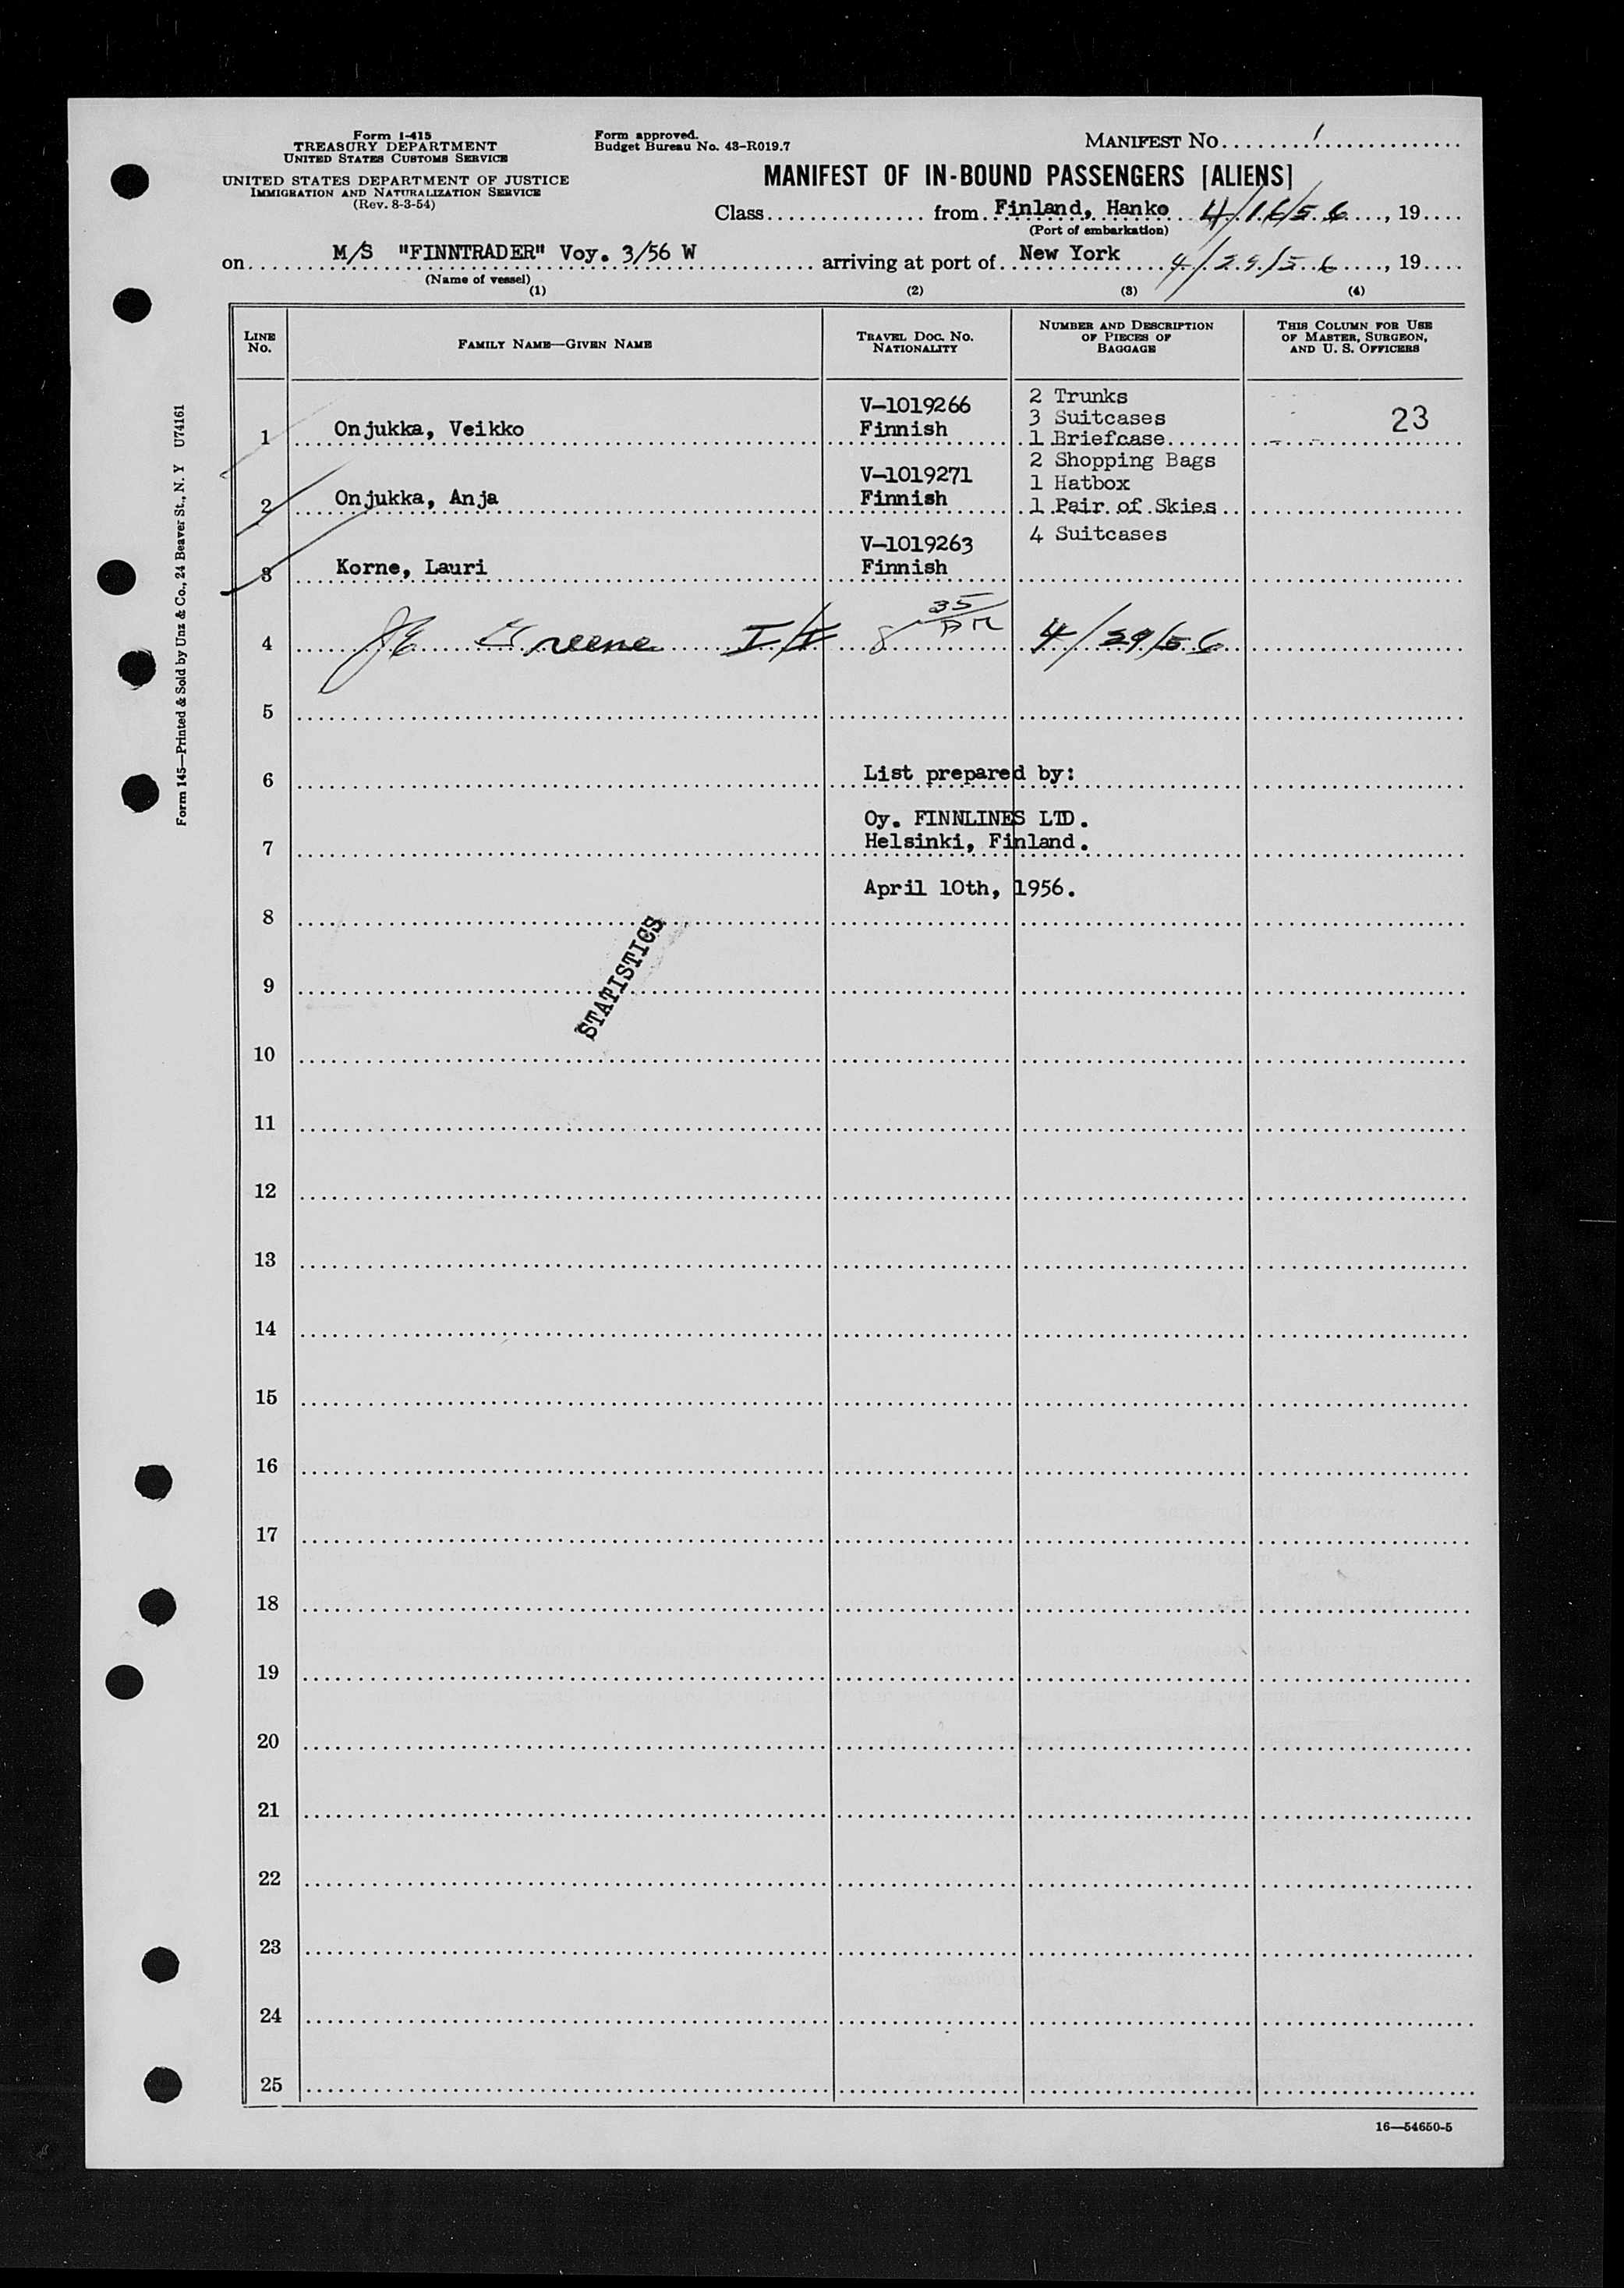 Form I-415
TREASURY DEPARTMENT
UNITED STATES CUSTOMS SERVICE
UNITED STATES DEPARTMENT OF JUSTICE
IMMIGRATION AND NATURALIZATION SERVICE
(Rev. 8-3-54)
Form approved.
Budget Bureau No. 43-R019.7
MANIFEST NO. 1
MANIFEST OF IN-BOUND PASSENGERS [ALIENS]
Class from Finland, Hanko 4/16/56, 19
(Port of embarkation)
on M/S "FINNTRADER" Voy. 3/56 W arriving at port of New York 4/29/56, 19
(Name of vessel)
(1) (2) (3) (4)
LINE NO.
FAMILY NAME—GIVEN NAME
TRAVEL DOC. NO. NATIONALITY
NUMBER AND DESCRIPTION OF PIECES OF BAGGAGE
THIS COLUMN FOR USE OF MASTER, SURGEON, AND U. S. OFFICERS
1 Onjukka, Veikko V-1019266 Finnish 2 Trunks 3 Suitcases 1 Briefcase 23
2 Onjukka, Anja V-1019271 Finnish 2 Shopping Bags 1 Hatbox 1 Pair of Skies
3 Korne, Lauri V-1019263 Finnish 4 Suitcases
4 JE Greene I/I 8 35 AM 4/29/56
5
6 List prepared by:
Oy. FINNLINES LTD.
7 Helsinki, Finland.
April 10th, 1956.
8
STATISTICS
9
10
11
12
13
14
15
16
17
18
19
20
21
22
23
24
25
16—54650-5
Form 145—Printed & Sold by Unz & Co., 24 Beaver St., N. Y U74161